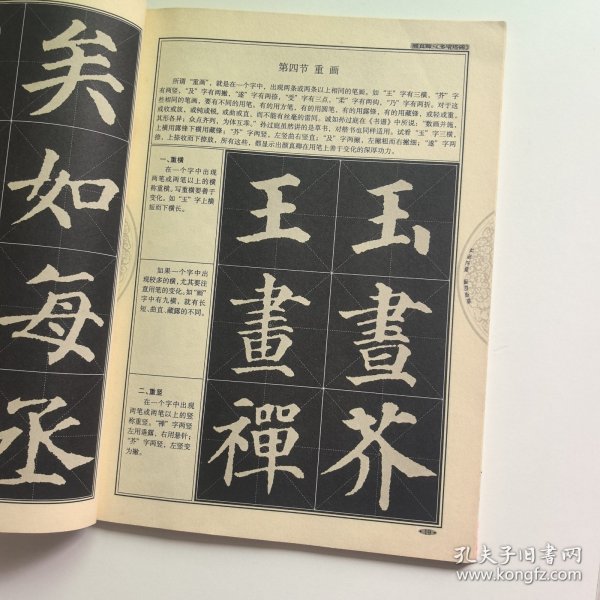 矣
如
每
丞
颜真卿·《多宝塔碑》
第四节 重 画
所谓“重画”，就是在一个字中，出现两条或两条以上相同的笔画。如“王”字有三横，“芥”字
有两竖，“及”字有两撇，“遂”字有两捺，“受”字有三点，“柔”字有两钩，“乃”字有两折。对于这
些相同的笔画，要有不同的用笔，有的用方笔，有的用圆笔，有的用露锋，有的用藏锋，或轻或重，
或收或放，或钝或锐，或曲或直，而不能有丝毫的雷同。诚如孙过庭在《书谱》中所说：“数画并施，
其形各异；众点齐列，为体互乖。”孙过庭虽然讲的是草书，对楷书也同样适用。试看“玉”字三横，
上横用露锋下横用藏锋；“芥”字两竖，左竖曲右竖直；“及”字两撇，左撇粗而右撇细；“遂”字两
捺，上捺收而下捺放，所有这些，都显示出颜真卿在用笔上善于变化的深厚功力。
一、重横
在一个字中出现
两笔或两笔以上的横
称重横。写重横要善于
变化。如“玉”字上横
短而下横长。
如果一个字中出
现较多的横，尤其要注
意用笔的变化。如“画”
字中有九横，就有长
短、曲直、藏露的不同。
二、重竖
在一个字中出现
两笔或两笔以上的竖
称重竖。“禅”字两竖
左用垂露，右用悬针；
“芥”字两竖，左竖变
为撇。
王
玉
畫
晝
禪
芥
19
孔夫子旧书网
www.kongfz.com